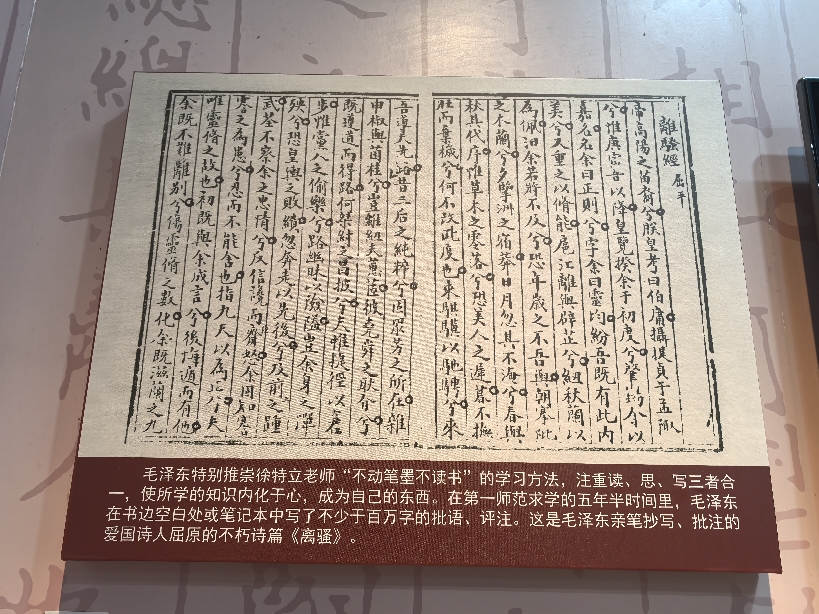 離騷經 屈平
帝高陽之苗裔兮朕皇考曰伯庸攝提貞于孟陬
兮惟庚寅吾以降皇覽揆余于初度兮肇錫余以
嘉名名余曰正則兮字余曰靈均紛吾既有此內
美兮又重之以脩能扈江離與辟芷兮紉秋蘭以
為佩汨余若將不及兮恐年歲之不吾與朝搴阰
之木蘭兮夕攬洲之宿莽日月忽其不淹兮春與
秋其代序惟草木之零落兮恐美人之遲暮不撫
壯而棄穢兮何不改此度也乘騏驥以馳騁兮來
吾道夫先路昔三后之純粹兮固眾芳之所在雜
申椒與菌桂兮豈維紉夫蕙茝彼堯舜之耿介兮
既遵道而得路何桀紂之昌披兮夫惟捷徑以窘
步惟黨人之偷樂兮路幽昧以險隘豈余身之憚
殃兮恐皇輿之敗績忽奔走以先後兮及前之踵
武荃不察余之忠情兮反信讒而齌怒余固知謇
謇之為患兮忍而不能舍也指九天以為正兮夫
唯靈脩之故也初既與余成言兮後悔遁而有他
余既不難離別兮傷靈脩之數化余既滋蘭之九
毛泽东特别推崇徐特立老师“不动笔墨不读书”的学习方法，注重读、思、写三者合
一，使所学的知识内化于心，成为自己的东西。在第一师范求学的五年半时间里，毛泽东
在书边空白处或笔记本中写了不少于百万字的批语、评注。这是毛泽东亲笔抄写、批注的
爱国诗人屈原的不朽诗篇《离骚》。